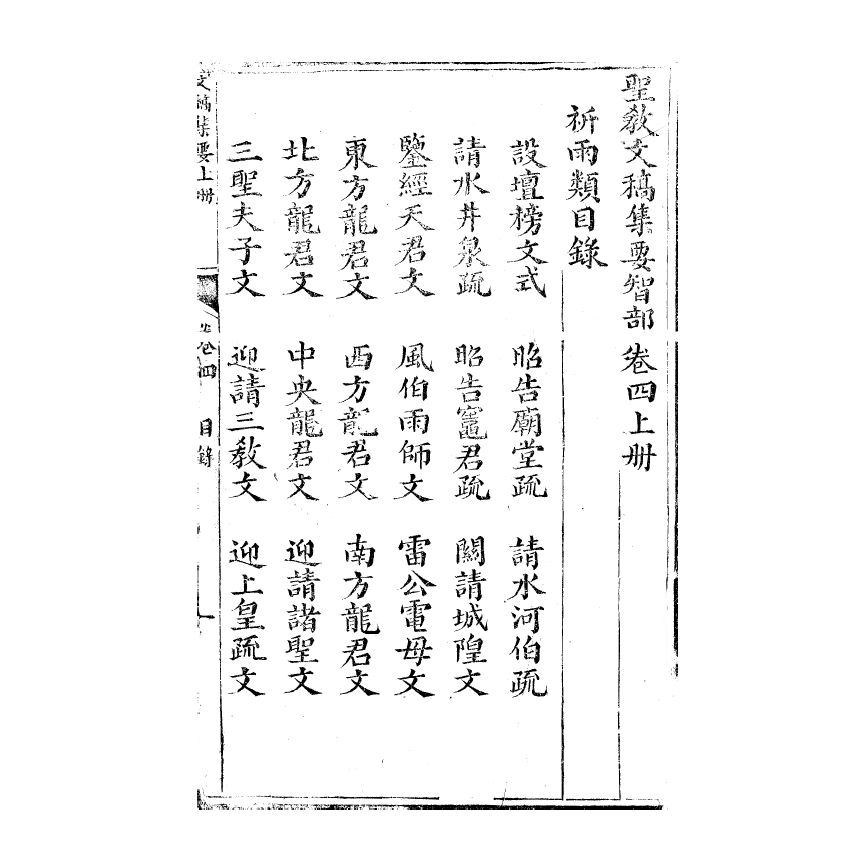 聖教文稿集要智部 卷四上册
祈雨類目錄
設壇榜文式 昭告廟堂疏 請水河伯疏
請水井泉疏 昭告竈君疏 關請城隍文
鑒經天君文 風伯雨師文 雷公電母文
東方龍君文 西方龍君文 南方龍君文
北方龍君文 中央龍君文 迎請諸聖文
三聖夫子文 迎請三教文 迎上皇疏文
文稿集要上册 卷四 目錄